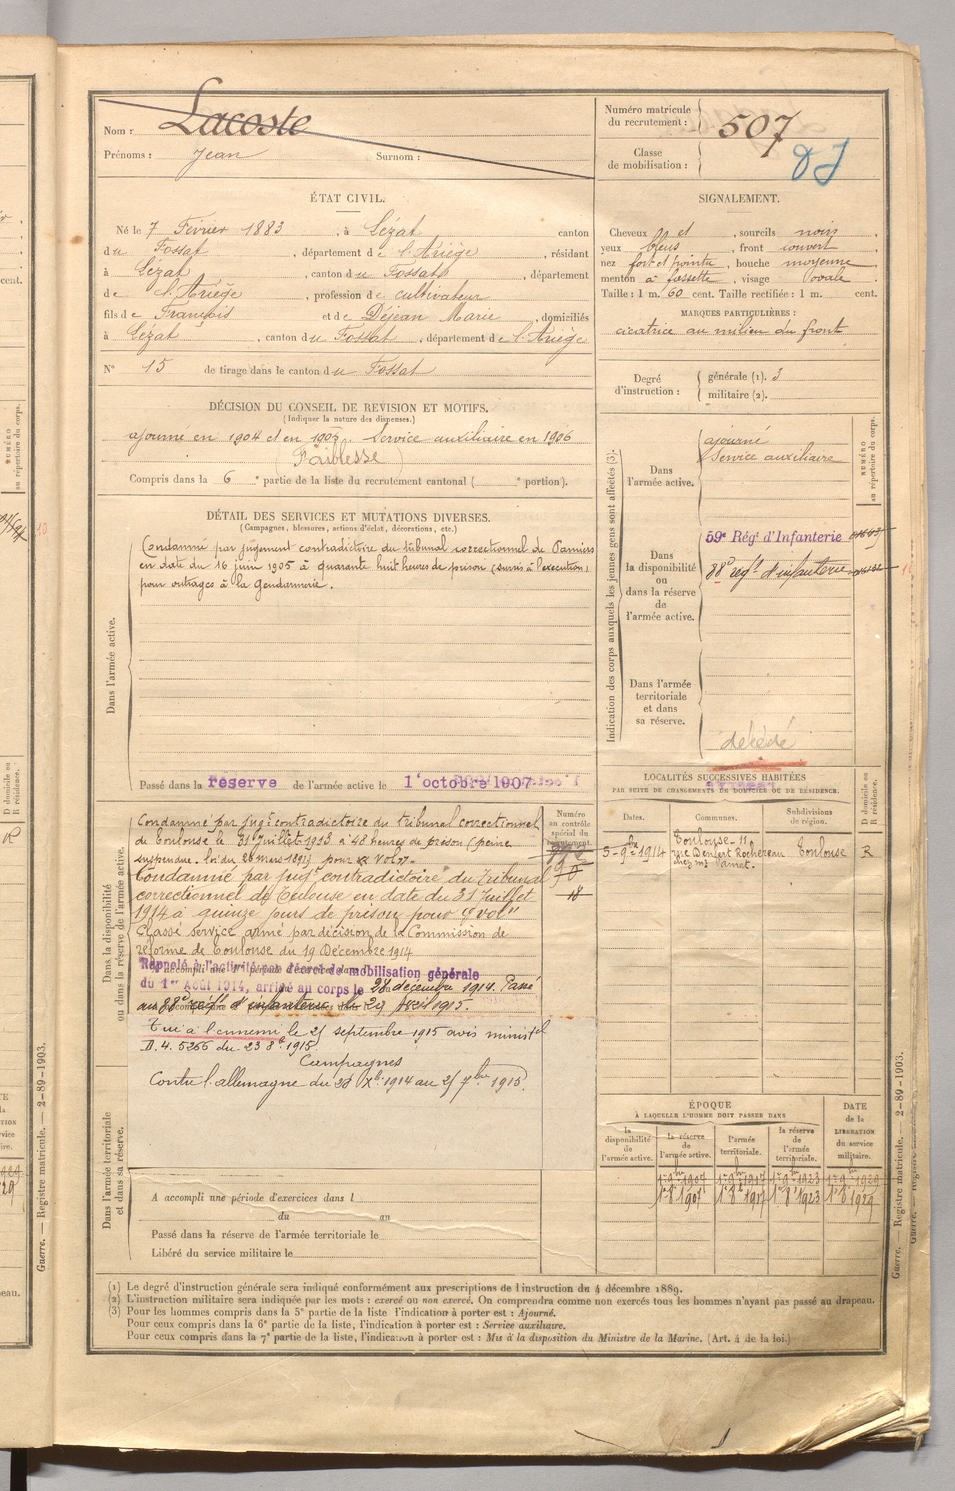 Nom : Lacoste
Prénoms : Jean Surnom :
Numéro matricule du recrutement : 507
Classe de mobilisation :
ÉTAT CIVIL.
Né le 7 Février 1883, à Lézat canton
du Fossat, département de l'Ariège, résidant
à Lézat, canton du Fossat, département
de l'Ariège, profession de cultivateur
fils de François et de Déjean Marie, domiciliés
à Lézat, canton du Fossat, département de l'Ariège
N° 15 de tirage dans le canton du Fossat
SIGNALEMENT.
Cheveux et, sourcils noirs,
yeux bleus, front couvert
nez fort et pointu, bouche moyenne
menton à fossette, visage ovale
Taille : 1 m. 60 cent. Taille rectifiée : 1 m. cent.
MARQUES PARTICULIÈRES :
cicatrice au milieu du front
Degré d'instruction : générale (1). 3
militaire (2).
DÉCISION DU CONSEIL DE REVISION ET MOTIFS.
(Indiquer la nature des dispenses.)
ajourné en 1904 et en 1905. Service auxiliaire en 1906
(Faiblesse)
Compris dans la 6e partie de la liste du recrutement cantonal ( e portion).
DÉTAIL DES SERVICES ET MUTATIONS DIVERSES.
(Campagnes, blessures, actions d'éclat, décorations, etc.)
Dans l'armée active.
Condamné par jugement contradictoire du tribunal correctionnel de Pamiers
en date du 16 juin 1905 à quarante huit heures de prison (sursis à l'exécution)
pour outrages à la gendarmerie.
Passé dans la réserve de l'armée active le 1er octobre 1907
Indication des corps auxquels les jeunes gens sont affectés (3).
NUMÉRO au répertoire du corps.
Dans l'armée active.
ajourné
Service auxiliaire
Dans la disponibilité ou dans la réserve de l'armée active.
59e Régt d'Infanterie
88e régt d'infanterie
Dans l'armée territoriale et dans sa réserve.
décédé
LOCALITÉS SUCCESSIVES HABITÉES
PAR SUITE DE CHANGEMENTS DE DOMICILE OU DE RÉSIDENCE.
Dates. Communes. Subdivisions de région. D domicile ou R résidence.
Toulouse - 11
rue Denfert Rochereau Toulouse R
Dans la disponibilité ou dans la réserve de l'armée active.
Numéro au contrôle spécial du recrutement.
18
Condamné par jugt contradictoire du tribunal correctionnel
de Toulouse le 31 juillet 1913 à 48 heures de prison (peine
suspendue. loi du 26 mars 1891) pour vol".
Condamné par jugt contradictoire du Tribunal
correctionnel de Toulouse en date du 31 Juillet
1914 à quinze jours de prison pour "vol"
Classé service armé par décision de la Commission de
réforme de Toulouse du 19 Décembre 1914
Rappelé à l'activité par décret de mobilisation générale
du 1er Août 1914, arrivé au corps le 28 décembre 1914. Passé
au 88e régt d'infanterie le 29 Avril 1915.
Tué à l'ennemi le 25 septembre 1915 avis ministel
D.4. 5266 du 23 8bre 1915
Campagnes
Contre l'allemagne du 28 Xbre 1914 au 25 7bre 1915.
Dans l'armée territoriale et dans sa réserve.
A accompli une période d'exercices dans l
du au
Passé dans la réserve de l'armée territoriale le
Libéré du service militaire le
ÉPOQUE
À LAQUELLE L'HOMME DOIT PASSER DANS
DATE de la LIBÉRATION du service militaire.
la disponibilité de l'armée active. la réserve de l'armée active. l'armée territoriale. la réserve de l'armée territoriale.
(1) Le degré d'instruction générale sera indiqué conformément aux prescriptions de l'instruction du 4 décembre 1889.
(2) L'instruction militaire sera indiquée par les mots : exercé ou non exercé. On comprendra comme non exercés tous les hommes n'ayant pas passé au drapeau.
(3) Pour les hommes compris dans la 5e partie de la liste l'indication à porter est : Ajourné.
Pour ceux compris dans la 6e partie de la liste, l'indication à porter est : Service auxiliaire.
Pour ceux compris dans la 7e partie de la liste, l'indication à porter est : Mis à la disposition du Ministre de la Marine. (Art. 4 de la loi.)
Guerre. — Registre matricule. — 2-89-1903.
Guerre. — Registre matricule. — 2-89-1903.